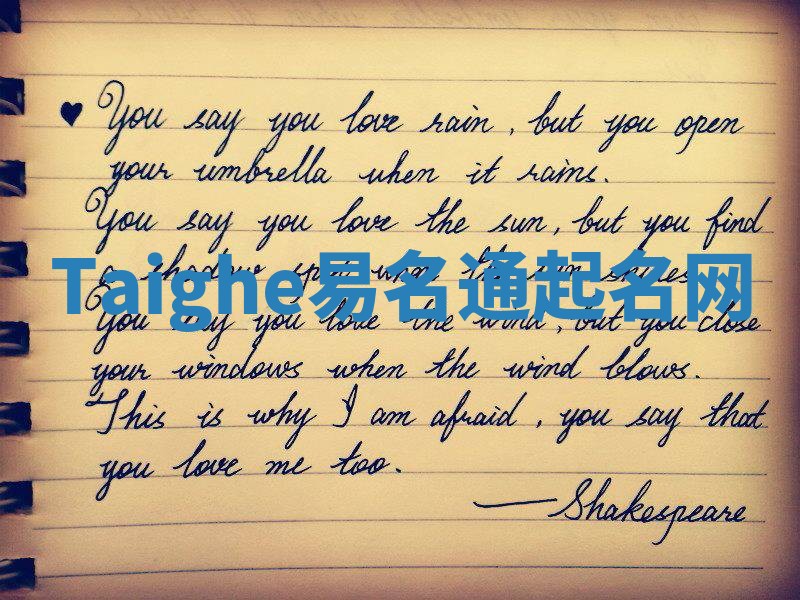 ♥ You say you love rain, but you open
your umbrella when it rains.
You say you love the sun, but you find
a shadow spot when the sun shines.
Taighe易名通起名网
You say you love the wind, but you close
your windows when the wind blows.
This is why I am afraid, you say that
you love me too.
— Shakespeare